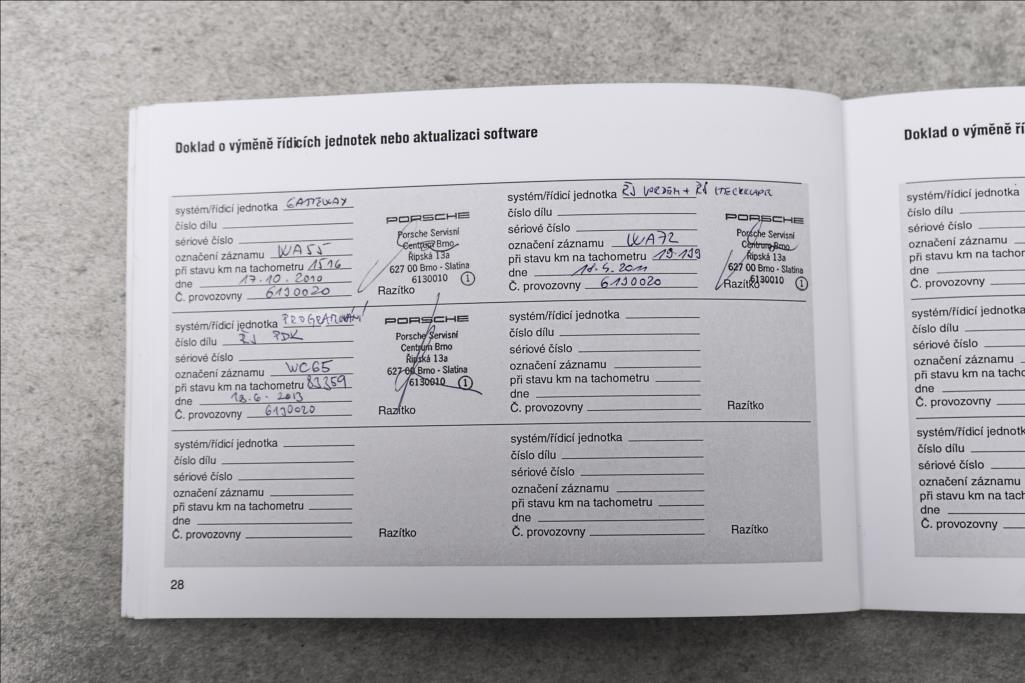 Doklad o výměně řídicích jednotek nebo aktualizaci software
systém/řídicí jednotka GATEWAY
číslo dílu
sériové číslo
označení záznamu WA55
při stavu km na tachometru 1516
dne 17.10.2010
Č. provozovny 6130020
PORSCHE
Porsche Servisní
Centrum Brno
Řipská 13a
627 00 Brno - Slatina
6130010 1
Razítko
systém/řídicí jednotka ŘJ + ŘJ
číslo dílu
sériové číslo
označení záznamu WA72
při stavu km na tachometru 19199
dne 2011
Č. provozovny 6130020
PORSCHE
Porsche Servisní
Centrum Brno
Řipská 13a
627 00 Brno - Slatina
6130010 1
Razítko
systém/řídicí jednotka PROGRAMOVÁNÍ
číslo dílu ŘJ PDK
sériové číslo
označení záznamu WC65
při stavu km na tachometru 83359
dne 18.6.2013
Č. provozovny 6130020
PORSCHE
Porsche Servisní
Centrum Brno
Řipská 13a
627 00 Brno - Slatina
6130010 1
Razítko
systém/řídicí jednotka
číslo dílu
sériové číslo
označení záznamu
při stavu km na tachometru
dne
Č. provozovny
Razítko
systém/řídicí jednotka
číslo dílu
sériové číslo
označení záznamu
při stavu km na tachometru
dne
Č. provozovny
Razítko
systém/řídicí jednotka
číslo dílu
sériové číslo
označení záznamu
při stavu km na tachometru
dne
Č. provozovny
Razítko
28
Doklad o výměně ří
systém/řídicí jednotka
číslo dílu
sériové číslo
označení záznamu
při stavu km na tacho
dne
Č. provozovny
systém/řídicí jednotk
číslo dílu
sériové číslo
označení záznamu
při stavu km na tach
dne
Č. provozovny
systém/řídicí jednot
číslo dílu
sériové číslo
označení záznamu
při stavu km na tac
dne
Č. provozovny